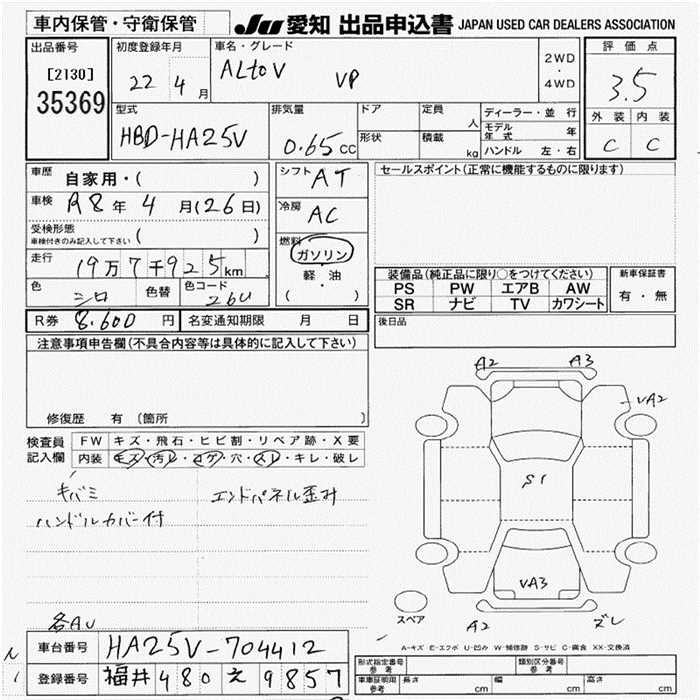 車内保管・守衛保管
JU 愛知 出品申込書 JAPAN USED CAR DEALERS ASSOCIATION
出品番号
[2130]
35369
初度登録年月
22 4 月
車名・グレード
ALto V VP
2WD
・
4WD
評価点
3.5
外装 内装
C C
型式
HBD-HA25V
排気量
0.65 cc
ドア
形状
定員 人
積載 kg
ディーラー・並行
モデル年式 年
ハンドル 左・右
車歴 自家用・( )
車検 R8年 4月(26日)
受検形態
車検付きのみ記入して下さい ( )
走行 19万7千925km
色 シロ 色替 色コード 26U
シフト AT
冷房 AC
燃料
ガソリン
・
軽・油
( )
セールスポイント(正常に機能するものに限ります)
装備品(純正品に限り○をつけてください)
PS PW エアB AW
SR ナビ TV カワシート
新車保証書
有・無
R券 8.600 円 名変通知期限 月 日
後日品
注意事項申告欄(不具合内容等は具体的に記入して下さい)
修復歴 有 〔箇所 〕
検査員記入欄
FW キズ・飛石・ヒビ割・リペア跡・X要
内装 キズ・汚レ・コゲ・穴・スレ・キレ・破レ
キバミ
ハンドルカバー付
エンドパネル歪み
A2 A3
VA2
S1
VA3
スペア
A2 ズレ
各AU
A-キズ E-エクボ U-凹み W-補修跡 S-サビ C-腐食 XX-交換済
車台番号 HA25V-704412
登録番号 福井 480 え 9857
形式指定番号 参考
類別区分番号 参考
車庫証明用 参考
長さ cm
幅 cm
高さ cm